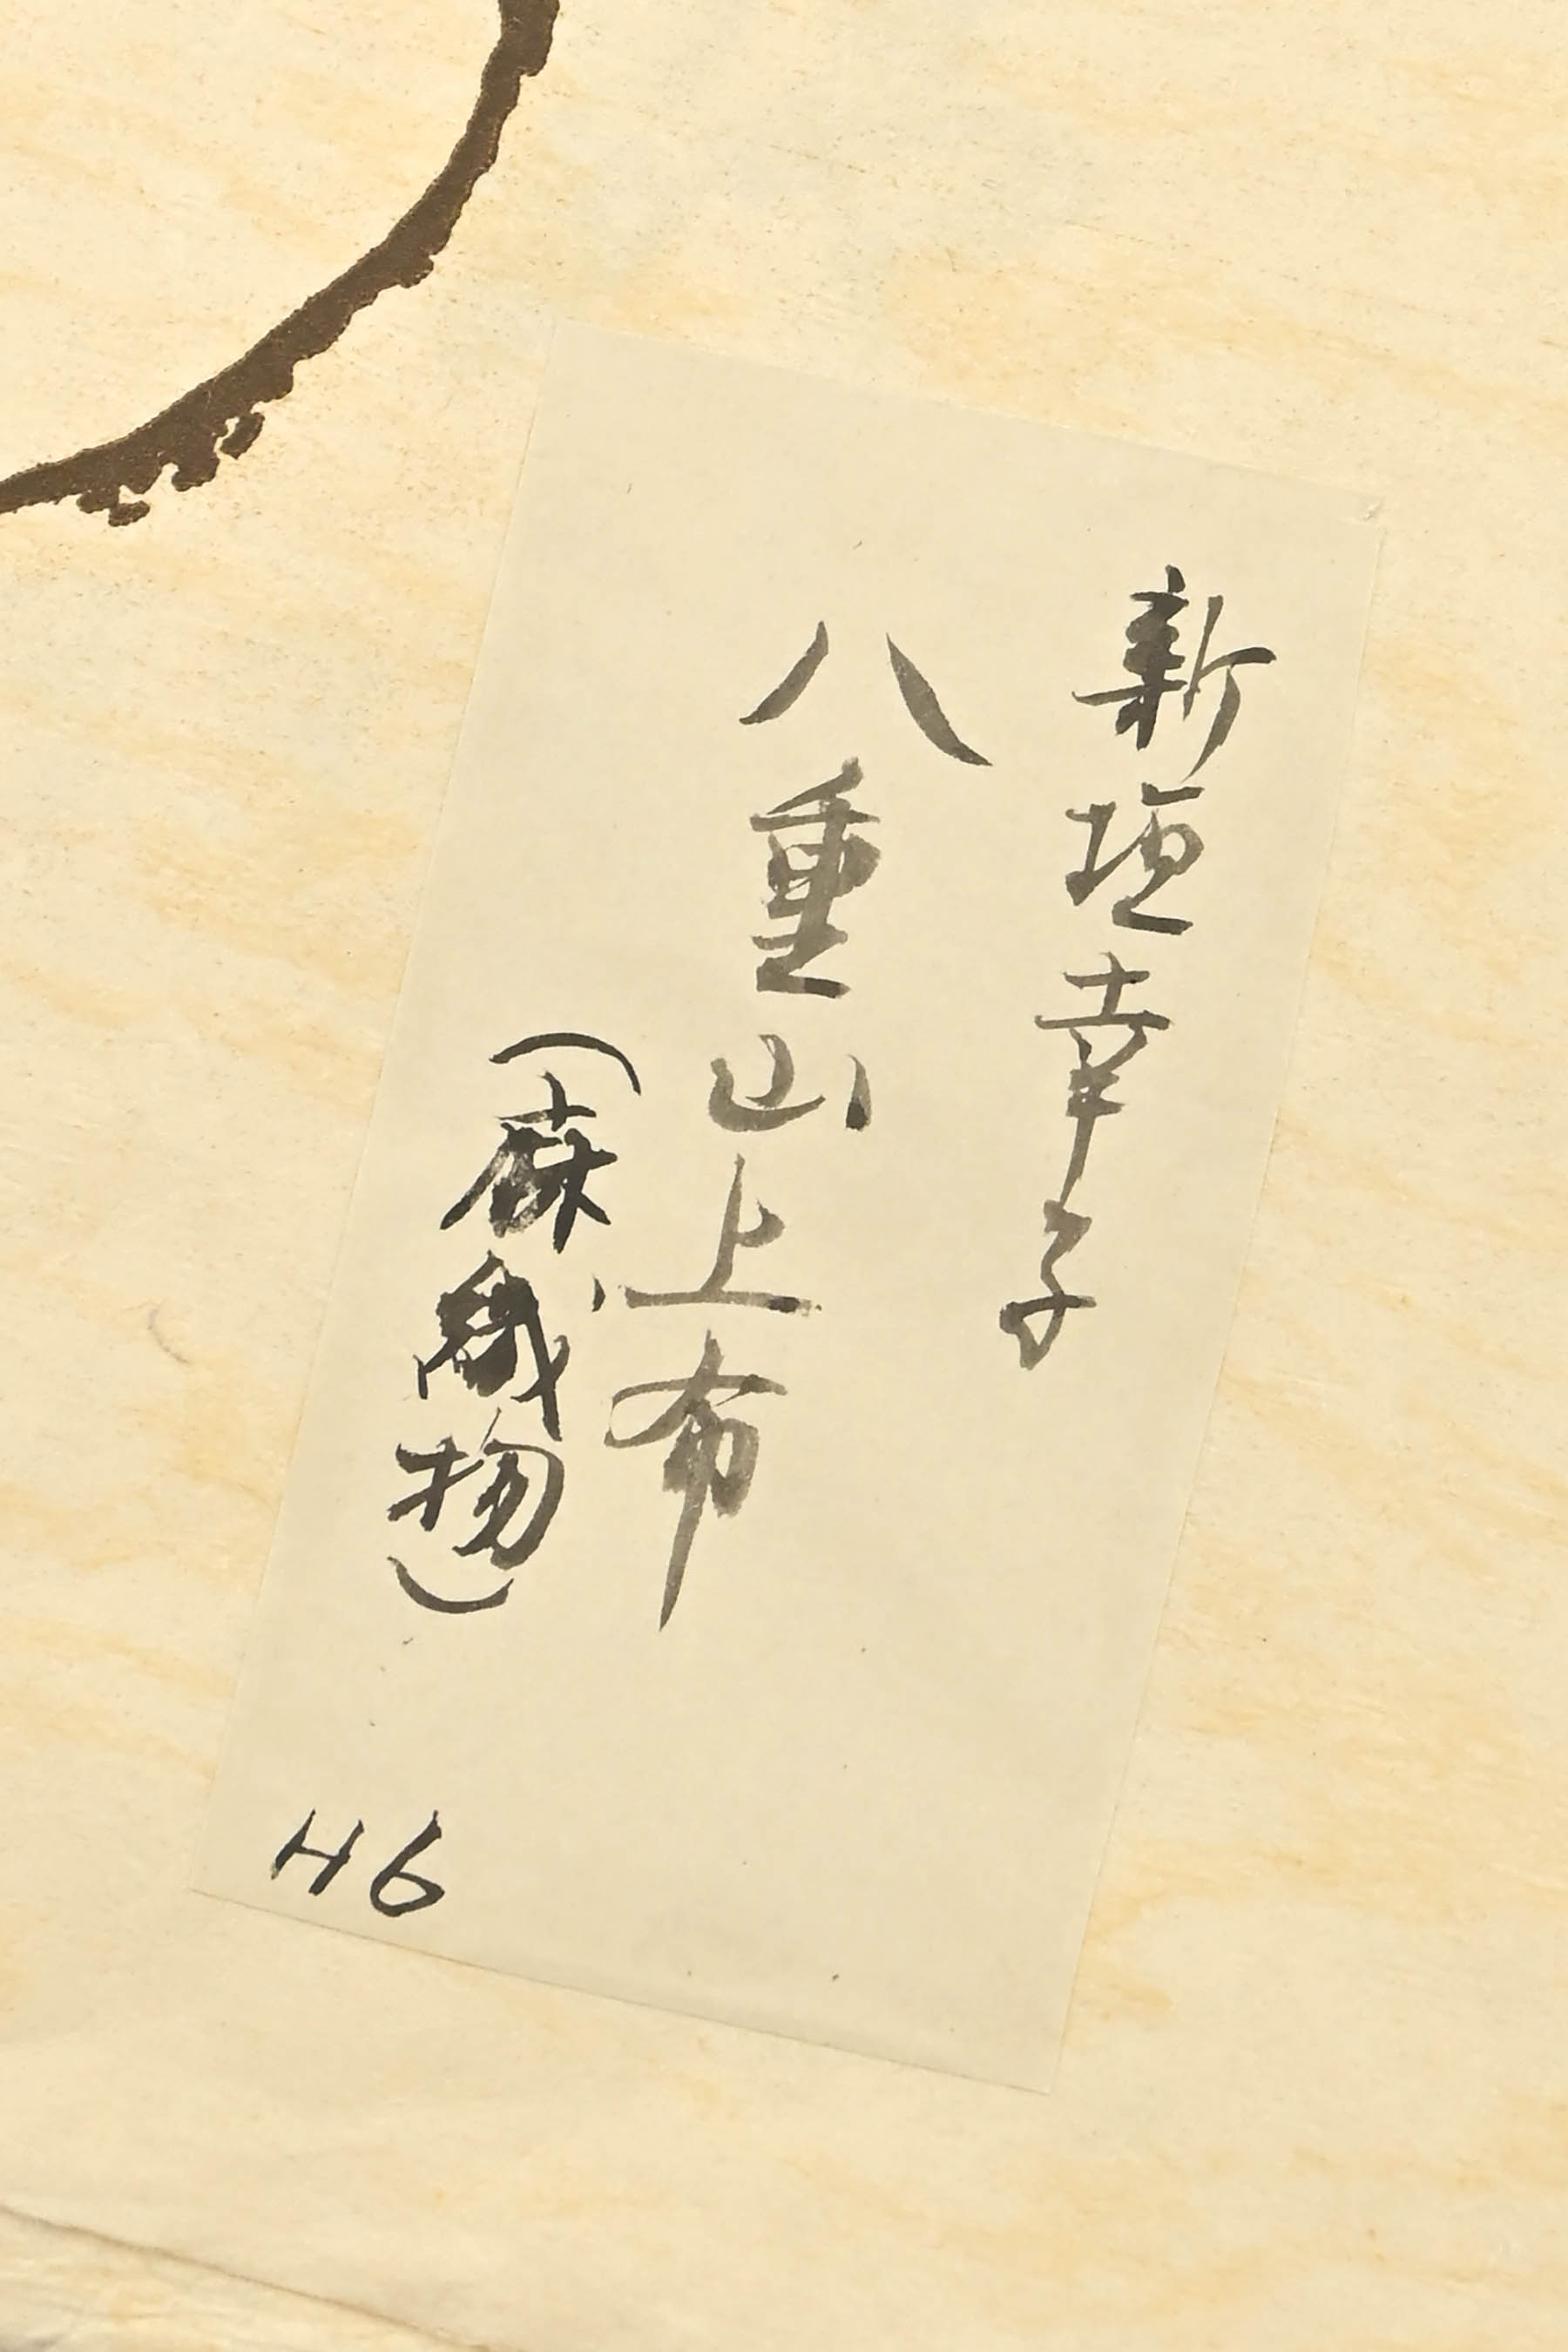 新垣幸子
八重山上布
（麻織物）
H6